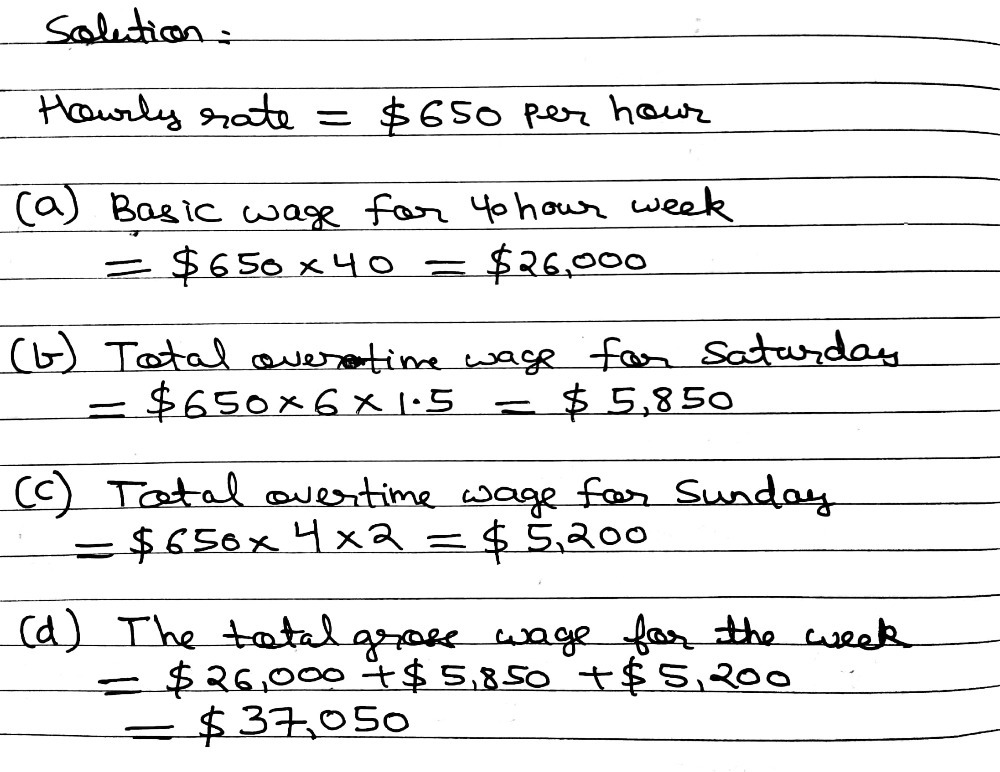 Solution :
Hourly rate = $650 per hour
(a) Basic wage for 40 hour week
= $650 × 40 = $26,000
(b) Total overtime wage for Saturday
= $650 × 6 × 1.5 = $ 5,850
(c) Total overtime wage for Sunday
= $650 × 4 × 2 = $ 5,200
(d) The total gross wage for the week
= $26,000 + $5,850 + $5,200
= $37,050